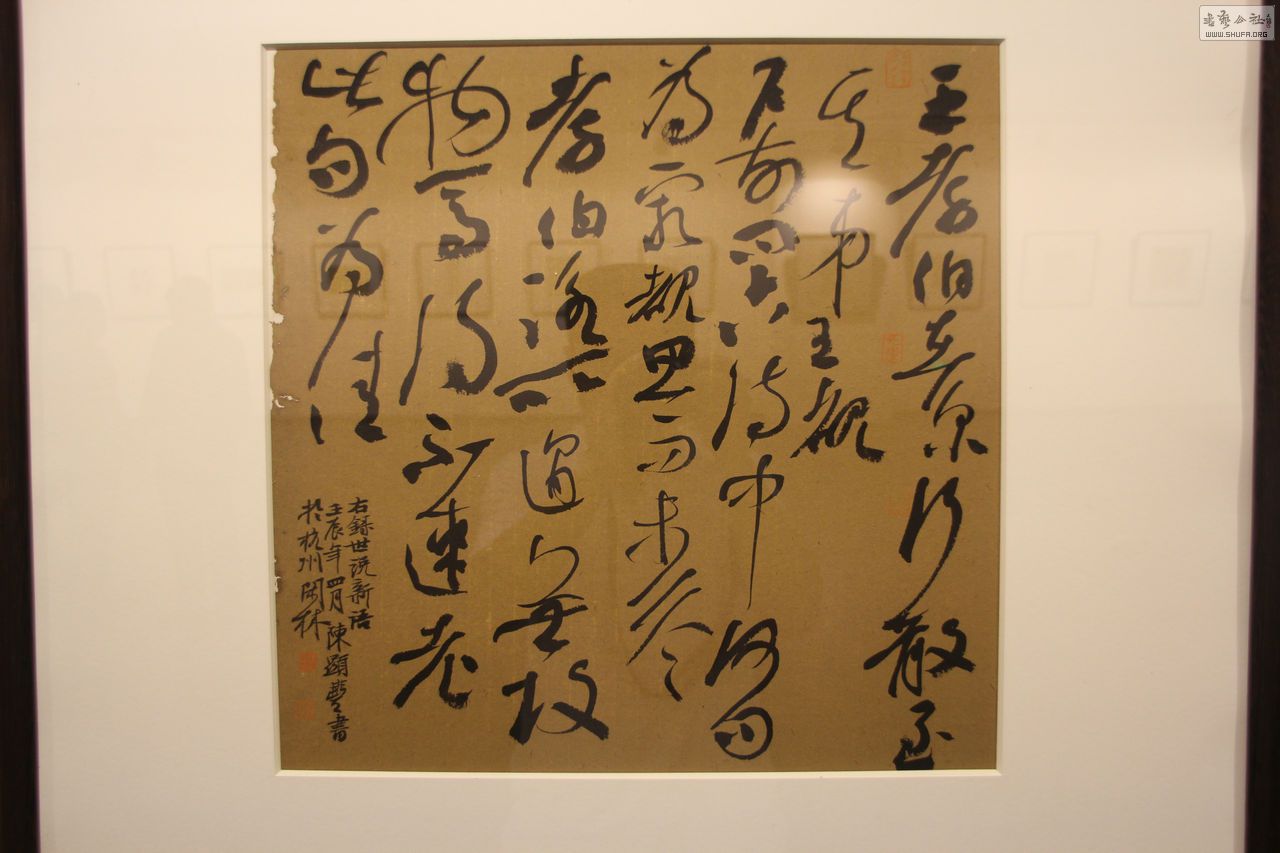 王孝伯在京行散至
其弟王睹
戶前問古詩中何句
為最睹思而未答
孝伯詠所遇無故
物焉得不速老
此句為佳
右錄世說新語
壬辰年四月陳顯豐書
於杭州閑林
書藝公社
WWW.SHUFA.ORG